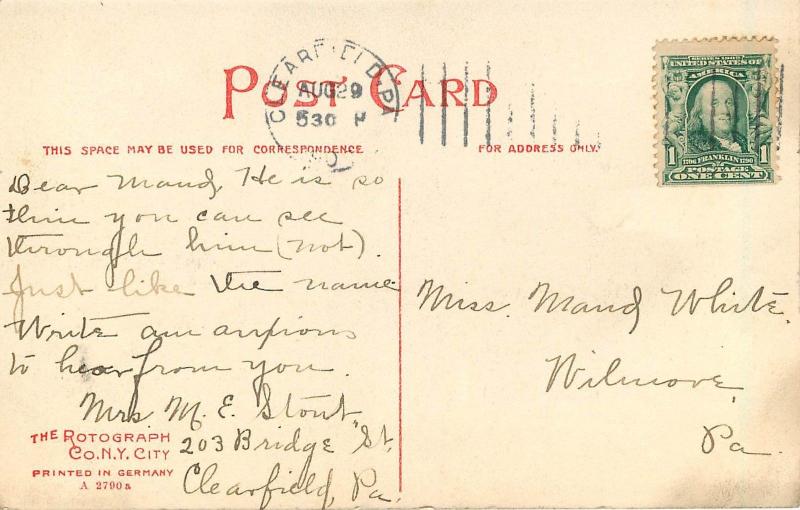 POST CARD
CLEARFIELD, PA
AUG 29
5 30 P
THIS SPACE MAY BE USED FOR CORRESPONDENCE
FOR ADDRESS ONLY.
SERIES 1902
UNITED STATES OF
AMERICA
1706 FRANKLIN 1790
1 POSTAGE 1
ONE CENT
Dear Maud, He is so
thin you can see
through him (not).
Just like the name
Write am anxious
to hear from you.
Mrs. M. E. Stout
203 Bridge St.
Clearfield, Pa.
Miss. Maud White.
Wilmore,
Pa.
THE ROTOGRAPH
CO. N.Y. CITY
PRINTED IN GERMANY
A 2790a